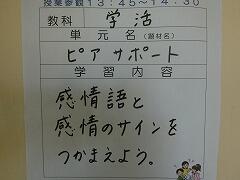 授業参観13:45～14:30
教科 学活
単元名(題材名)
ピアサポート
学習内容
感情語と
感情のサインを
つかまえよう。